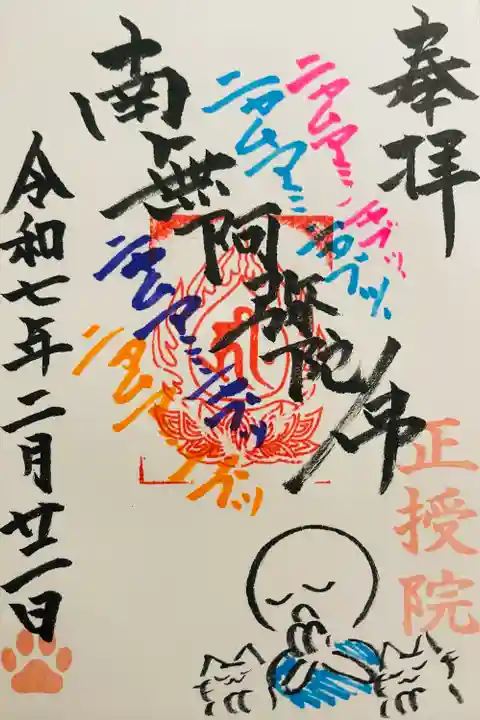 奉拝
南無阿弥陀佛
ニャムアミダブツ
ニャムアミダブツ
ニャムアミダブツ
ニャムアミダブツ
令和七年二月廿二日
正授院